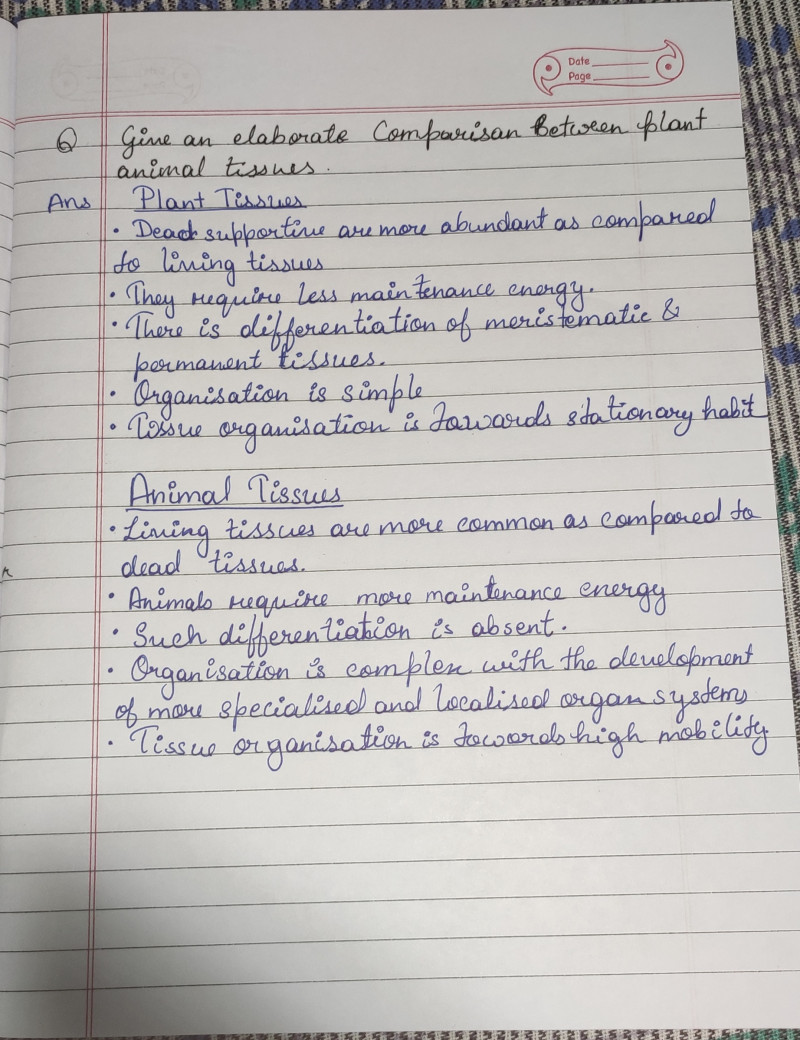 Date
Page
Q Give an elaborate Comparisan Between plant
animal tissues.
Ans Plant Tissues
• Dead supportive are more abundant as compared
to living tissues
• They require less maintenance energy.
• There is differentiation of meristematic &
permanent tissues.
• Organisation is simple
• Tissue organisation is towards stationary habit
Animal Tissues
• Living tissues are more common as compared to
dead tissues.
• Animals require more maintenance energy
• Such differentiation is absent.
• Organisation is complex with the development
of more specialised and localised organ systems
• Tissue organisation is towards high mobility.